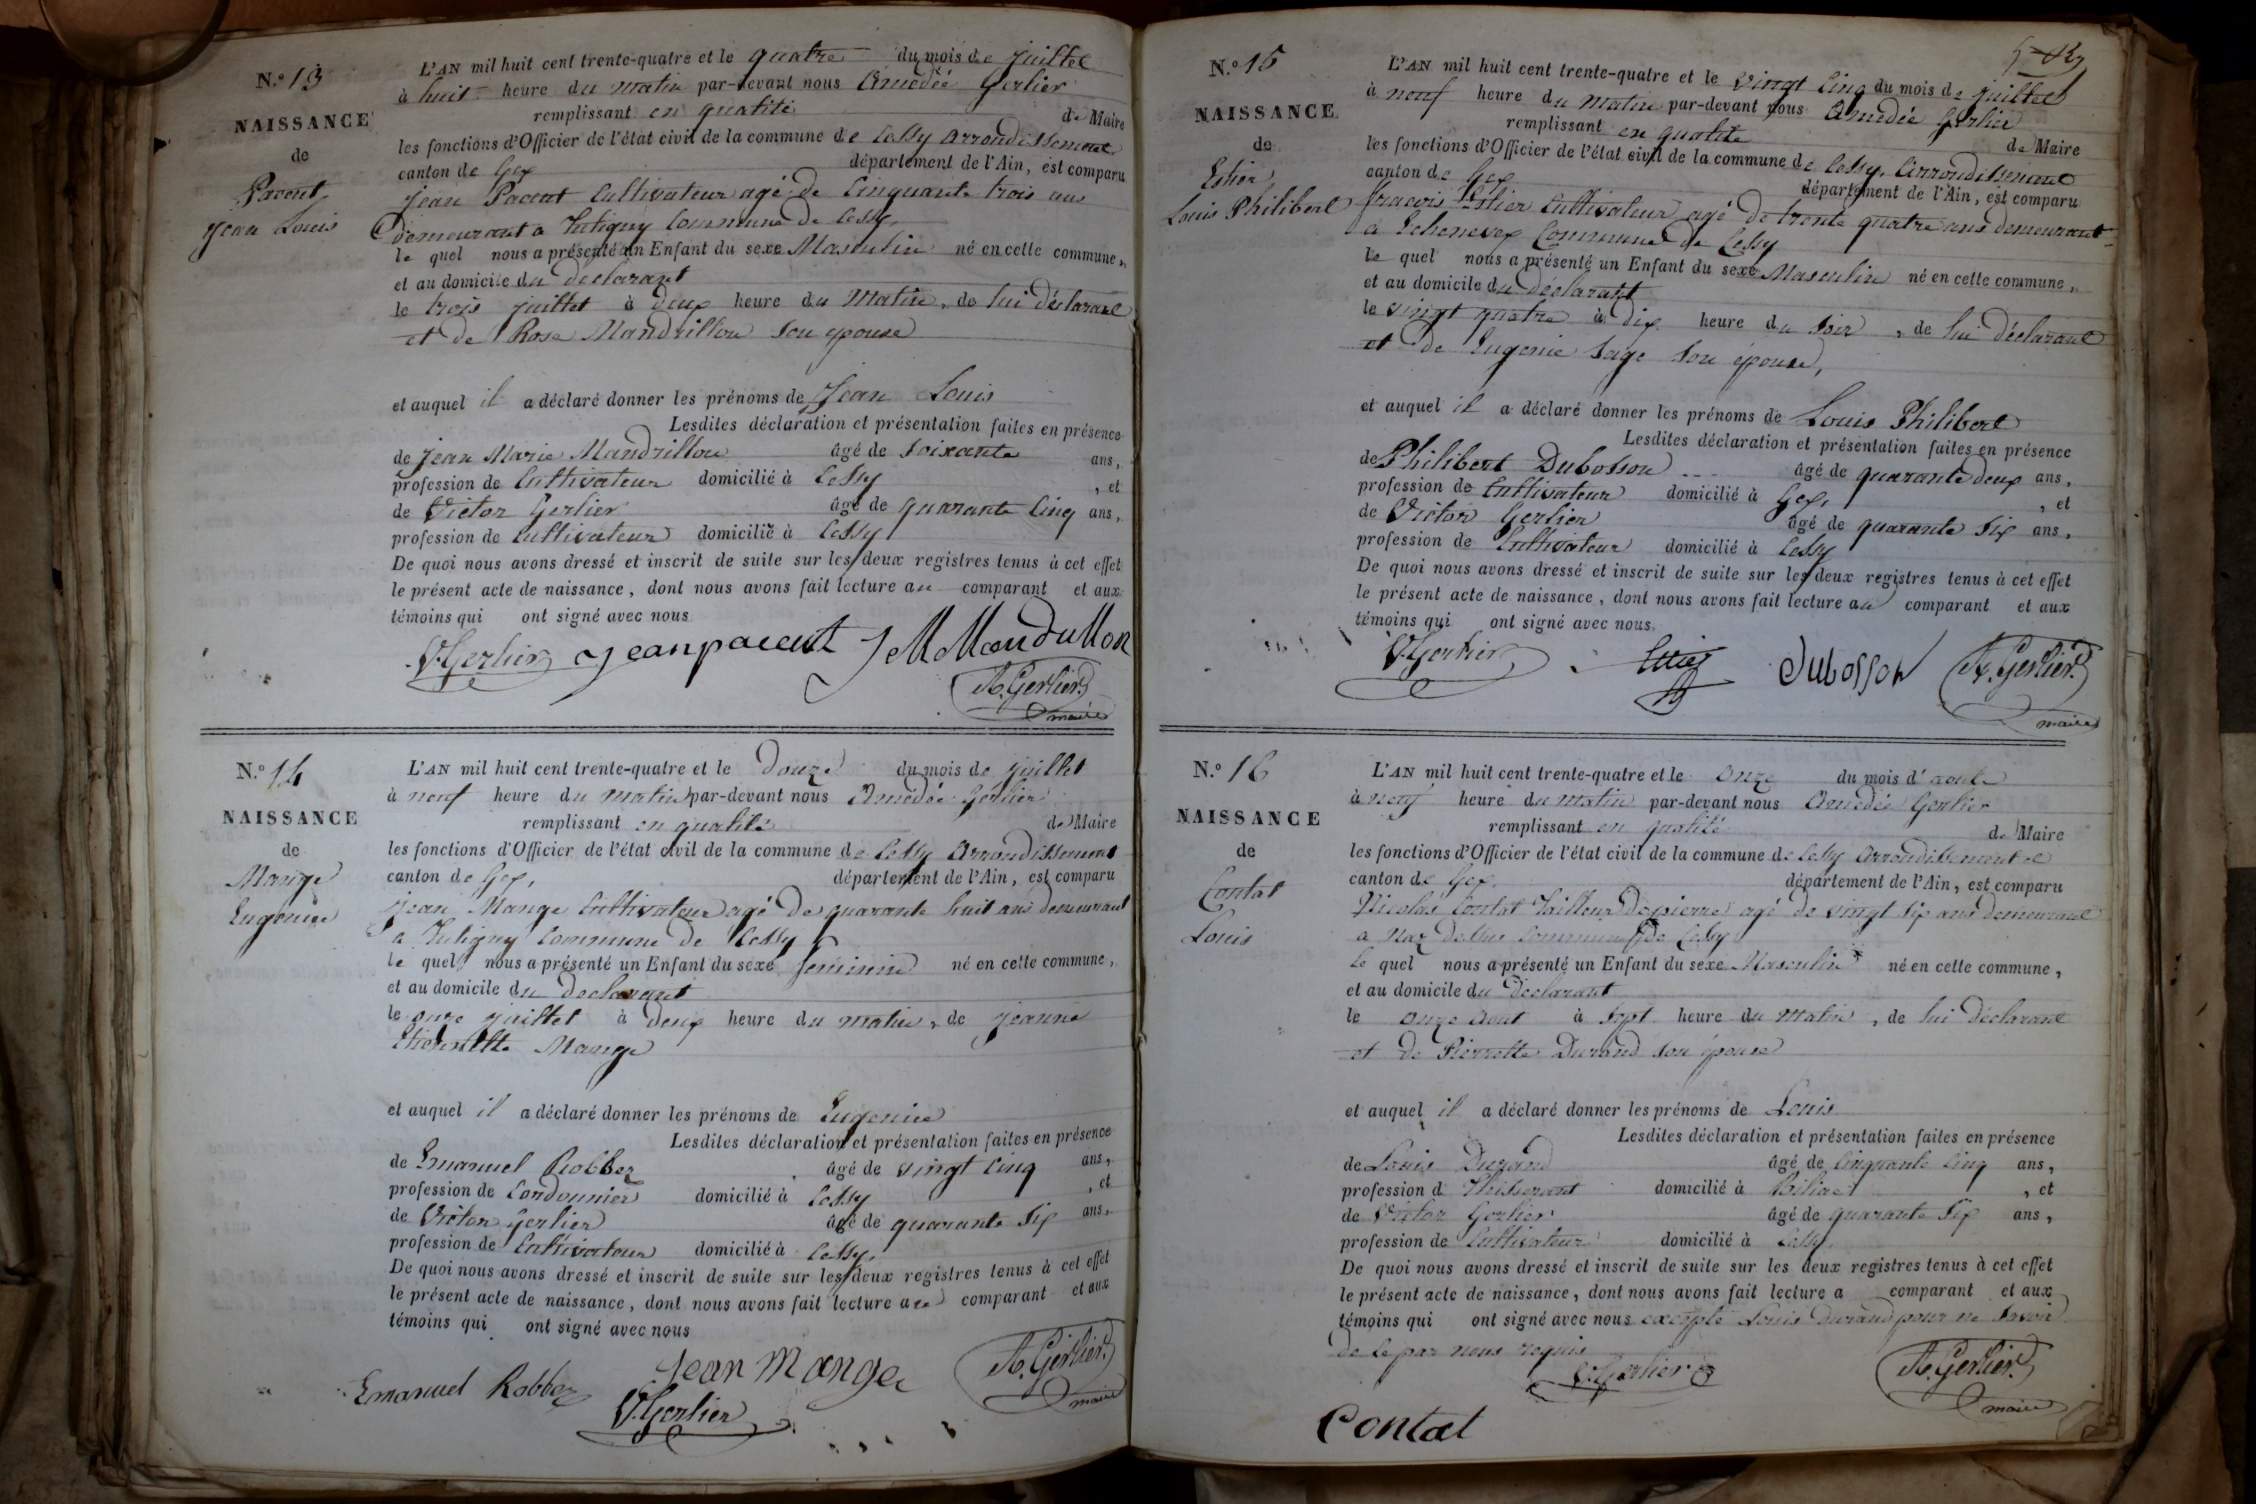 N.º 13
NAISSANCE
de
Pacent
Jean Louis
L'AN mil huit cent trente-quatre et le quatre du mois de juillet
à huit heure du matin par-devant nous Amédée Gerlier
remplissant en qualité de Maire
les fonctions d'Officier de l'état civil de la commune de Cessy arrondissement
canton de Gex département de l'Ain, est comparu
Jean Pacent Cultivateur agé de Cinquante trois ans
demeurant a Tutigny Commune de Cessy
le quel nous a présenté un Enfant du sexe Masculin né en cette commune,
et au domicile du déclarant
le trois juillet à deux heure du matin, de lui déclarant
et de Rose Mandrillon son épouse
et auquel il a déclaré donner les prénoms de Jean Louis
Lesdites déclaration et présentation faites en présence
de Jean Marie Mandrillon âgé de soixante ans,
profession de Cultivateur domicilié à Cessy, et
de Victor Gerlier âgé de quarante cinq ans,
profession de Cultivateur domicilié à Cessy
De quoi nous avons dressé et inscrit de suite sur les deux registres tenus à cet effet
le présent acte de naissance, dont nous avons fait lecture au comparant et aux
témoins qui ont signé avec nous
V. Gerlier jean pacent J M Mandrillon
A. Gerlier
maire
N.º 14
NAISSANCE
de
Mange
Eugenie
L'AN mil huit cent trente-quatre et le douze du mois de juillet
à neuf heure du matin par-devant nous Amédée Gerlier
remplissant en qualité de Maire
les fonctions d'Officier de l'état civil de la commune de Cessy arrondissement
canton de Gex, département de l'Ain, est comparu
Jean Mange Cultivateur agé de quarante huit ans demeurant
a Tutigny Commune de Cessy
le quel nous a présenté un Enfant du sexe feminin né en cette commune,
et au domicile du declarant
le onze juillet à deux heure du matin, de jeanne
Etiennette Mange
et auquel il a déclaré donner les prénoms de Eugenie
Lesdites déclaration et présentation faites en présence
de Emanuel Robbez âgé de vingt cinq ans,
profession de Cordonnier domicilié à Cessy, et
de Victor Gerlier âgé de quarante six ans,
profession de Cultivateur domicilié à Cessy,
De quoi nous avons dressé et inscrit de suite sur les deux registres tenus à cet effet
le présent acte de naissance, dont nous avons fait lecture au comparant et aux
témoins qui ont signé avec nous
Emanuel Robbez Jean Mange A. Gerlier
V. Gerlier maire
N.º 15
NAISSANCE
de
Estier
Louis Philibert
L'AN mil huit cent trente-quatre et le vingt cinq du mois de juillet
à neuf heure du matin par-devant nous Amédée Gerlier
remplissant en qualité de Maire
les fonctions d'Officier de l'état civil de la commune de Cessy, arrondissement
canton de Gex département de l'Ain, est comparu
francois Estier Cultivateur agé de trente quatre ans demeurant
a Echenevex Commune de Cessy
le quel nous a présenté un Enfant du sexe Masculin né en cette commune,
et au domicile du declarant
le vingt quatre à dix heure du soir, de lui déclarant
et de Eugenie Sage son épouse,
et auquel il a déclaré donner les prénoms de Louis Philibert
Lesdites déclaration et présentation faites en présence
de Philibert Dubosson âgé de quarante deux ans,
profession de Cultivateur domicilié à Gex, et
de Victor Gerlier âgé de quarante six ans,
profession de Cultivateur domicilié à Cessy
De quoi nous avons dressé et inscrit de suite sur les deux registres tenus à cet effet
le présent acte de naissance, dont nous avons fait lecture au comparant et aux
témoins qui ont signé avec nous.
V. Gerlier Dubosson A. Gerlier
maire
N.º 16
NAISSANCE
de
Contat
Louis
L'AN mil huit cent trente-quatre et le onze du mois d'aoute
à neuf heure du matin par-devant nous Amédée Gerlier
remplissant en qualité de Maire
les fonctions d'Officier de l'état civil de la commune de Cessy arrondissement
canton de Gex département de l'Ain, est comparu
Nicolas Contat Tailleur de pierre agé de vingt six ans demeurant
a Naz dessus Commune de Cessy
le quel nous a présenté un Enfant du sexe Masculin né en cette commune,
et au domicile du declarant
le onze aout à sept heure du matin, de lui déclarant
et de Pierrette Durand son épouse
et auquel il a déclaré donner les prénoms de Louis
Lesdites déclaration et présentation faites en présence
de Louis Durand âgé de cinquante cinq ans,
profession d Thisserant domicilié à , et
de Victor Gerlier âgé de quarante six ans,
profession de Cultivateur domicilié à Cessy
De quoi nous avons dressé et inscrit de suite sur les deux registres tenus à cet effet
le présent acte de naissance, dont nous avons fait lecture a comparant et aux
témoins qui ont signé avec nous excepté Louis Durand pour ne savoir
de ce par nous requis
V. Gerlier A. Gerlier
maire
Contat